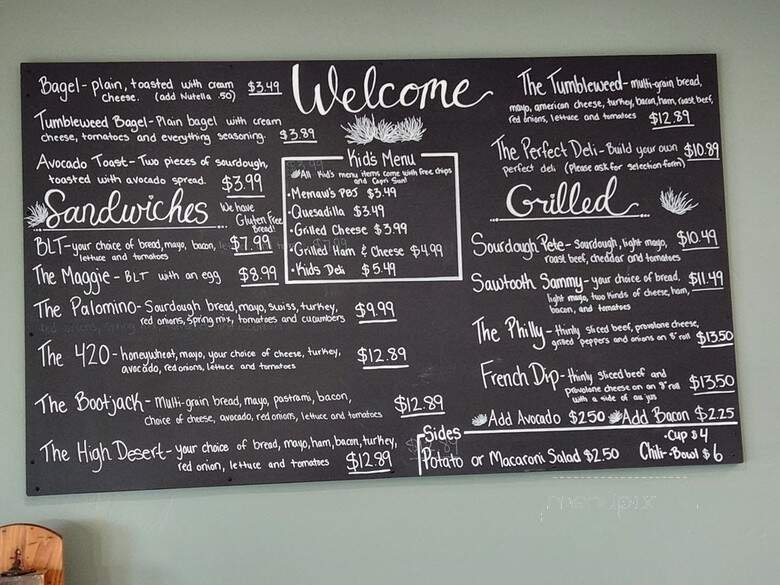 Welcome
Bagel- plain, toasted with cream $3.49
cheese. (add Nutella .50)
Tumbleweed Bagel- Plain bagel with cream
cheese, tomatoes and everything seasoning. $3.89
Avocado Toast- Two pieces of sourdough,
toasted with avocado spread. $3.99
Sandwiches
We have
Gluten Free
Bread!
BLT- your choice of bread, mayo, bacon, $7.99
lettuce and tomatoes
The Maggie- BLT with an egg $8.99
The Palomino- Sourdough bread, mayo, swiss, turkey,
red onions, spring mix, tomatoes and cucumbers $9.99
The 420- honeywheat, mayo, your choice of cheese, turkey,
avocado, red onions, lettuce and tomatoes $12.89
The Bootjack- Multi-grain bread, mayo, pastrami, bacon,
choice of cheese, avocado, red onions, lettuce and tomatoes $12.89
The High Desert- your choice of bread, mayo, ham, bacon, turkey,
red onion, lettuce and tomatoes $12.89
Kid's Menu
All Kid's menu items come with free chips
and Capri Sun!
•Memaw's PBJ $3.49
•Quesadilla $3.49
•Grilled Cheese $3.99
•Grilled Ham & Cheese $4.99
•Kids Deli $5.49
The Tumbleweed- multi-grain bread,
mayo, american cheese, turkey, bacon, ham, roast beef,
red onions, lettuce and tomatoes $12.89
The Perfect Deli- Build your own $10.89
perfect deli (Please ask for selection form)
Grilled
Sourdough Pete- Sourdough, light mayo, $10.49
roast beef, cheddar and tomatoes
Sawtooth Sammy- your choice of bread, $11.49
light mayo, two kinds of cheese, ham,
bacon, and tomatoes
The Philly- thinly sliced beef, provolone cheese,
grilled peppers and onions on 8" roll $13.50
French Dip- thinly sliced beef and
provolone cheese on an 8" roll $13.50
with a side of au jus
Add Avocado $2.50 Add Bacon $2.25
Sides
Potato or Macaroni Salad $2.50
Chili- •Cup $4
•Bowl $6